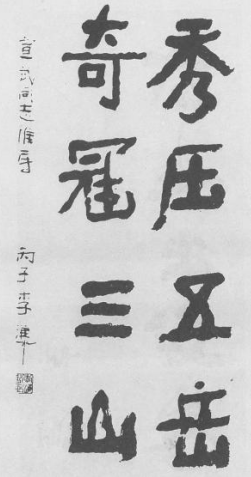 秀压五岳
奇冠三山
同志雅
丙子 李準